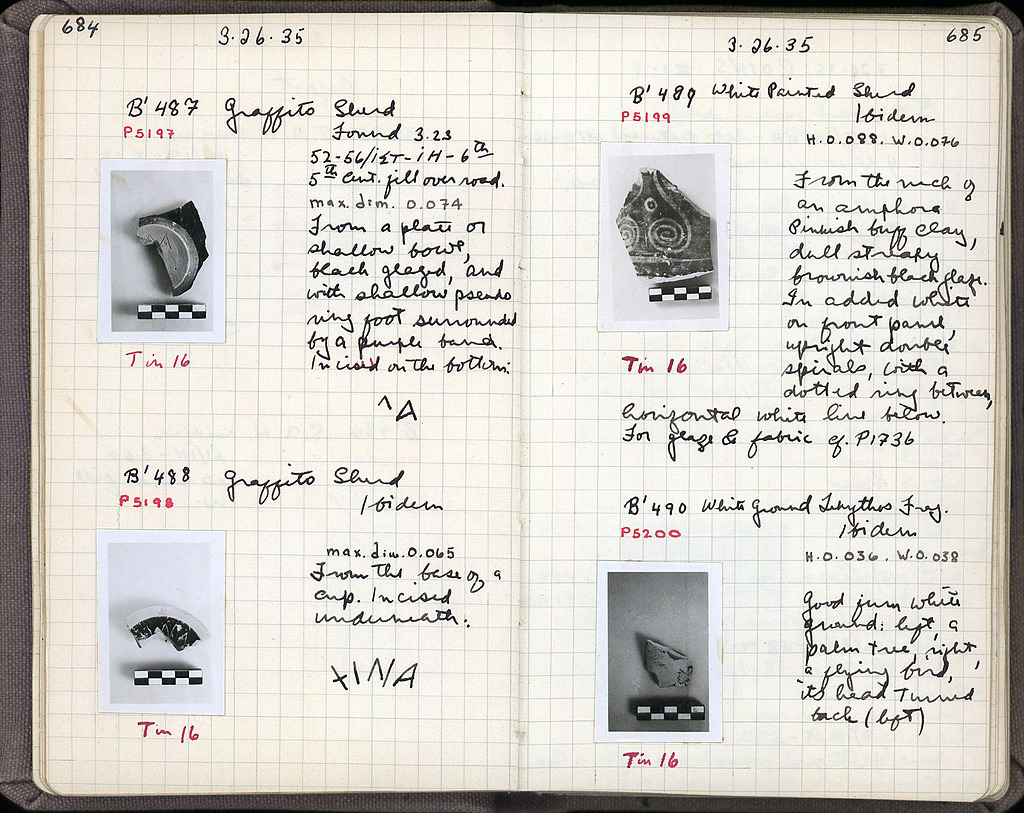 684
3·26·35
B' 487 Graffito Sherd
P5197
Found 3.23
52-56/ -
5th Cent. fill over road.
max. dim. 0.074
From a plate or
shallow bowl,
black glazed, and
with shallow pseudo
ring foot surrounded
by a purple band.
Incised on the bottom:
Tin 16
ΛA
B' 488 Graffito Sherd
P5198
Ibidem
max. dim. 0.065
From the base of a
cup. Incised
underneath:
Tin 16
685
3·26·35
B' 489 White Painted Sherd
P5199
Ibidem
H.0.088. W.0.076
From the neck of
an amphora
Pinkish buff clay,
dull streaky
brownish black glaze.
In added white
on front panel,
upright double
spirals, with a
dotted ring between,
horizontal white line below.
For glaze & fabric cf. P1736
Tin 16
B' 490 White Ground Lekythos Frag.
P5200
Ibidem
H.0.036. W.0.038
Good firm white
ground: left, a
palm tree, right,
a flying bird,
its head turned
back (left)
Tin 16